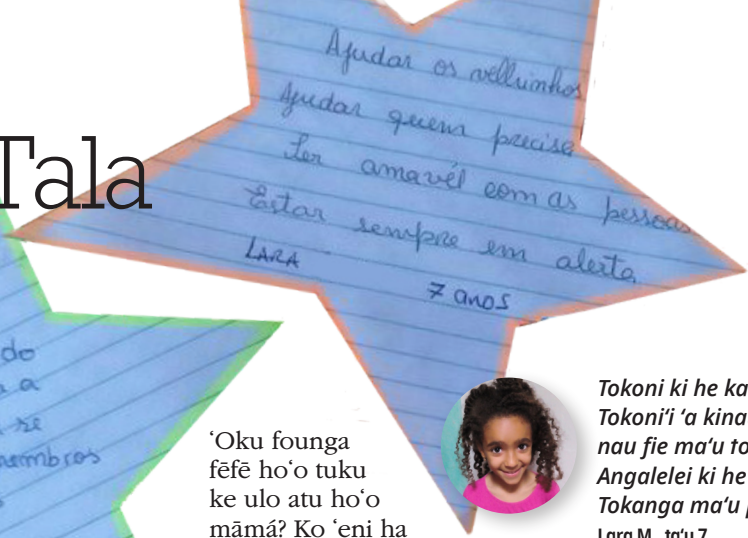 Tala
Ajudar os velhinhos
Ajudar quem precisa
Ser amavél com as pessoas
Estar sempre em alerta
LARA
7 anos
do
a
se
membros
ʻOku founga
fēfē hoʻo tuku
ke ulo atu hoʻo
māmá? Ko ʻeni ha
Tokoni ki he ka
Tokoniʻi ʻa kina
nau fie maʻu to
Angalelei ki he
Tokanga maʻu p
Lara M., taʻu 7